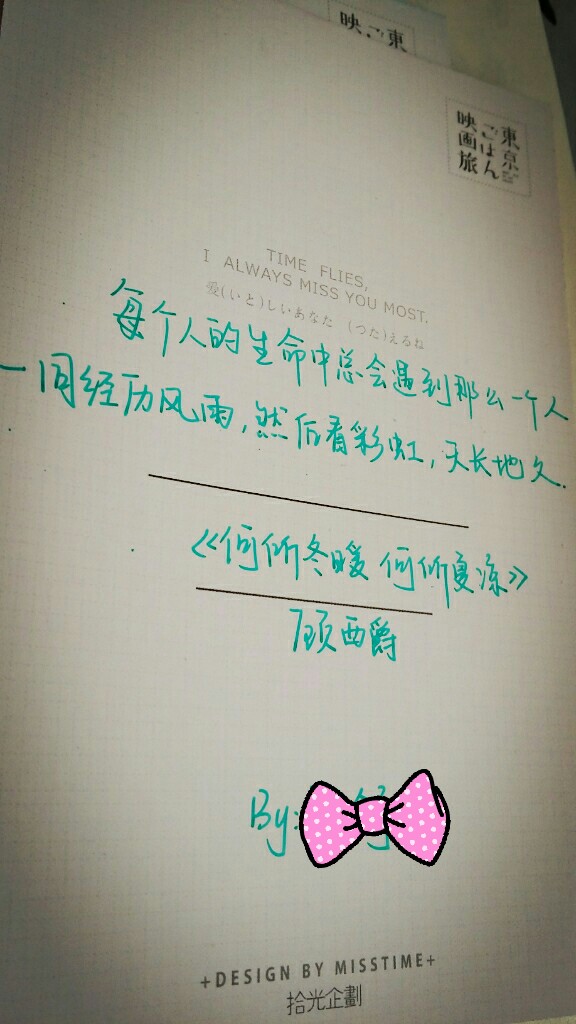 映ご東
東京
ごはん
映画旅
TIME FLIES,
I ALWAYS MISS YOU MOST.
愛(いと)しいあなた (つた)えるね
每个人的生命中总会遇到那么一个人
一同经历风雨,然后看彩虹,天长地久.
《何所冬暖 何所夏凉》
顾西爵
By:
+DESIGN BY MISSTIME+
拾光企劃